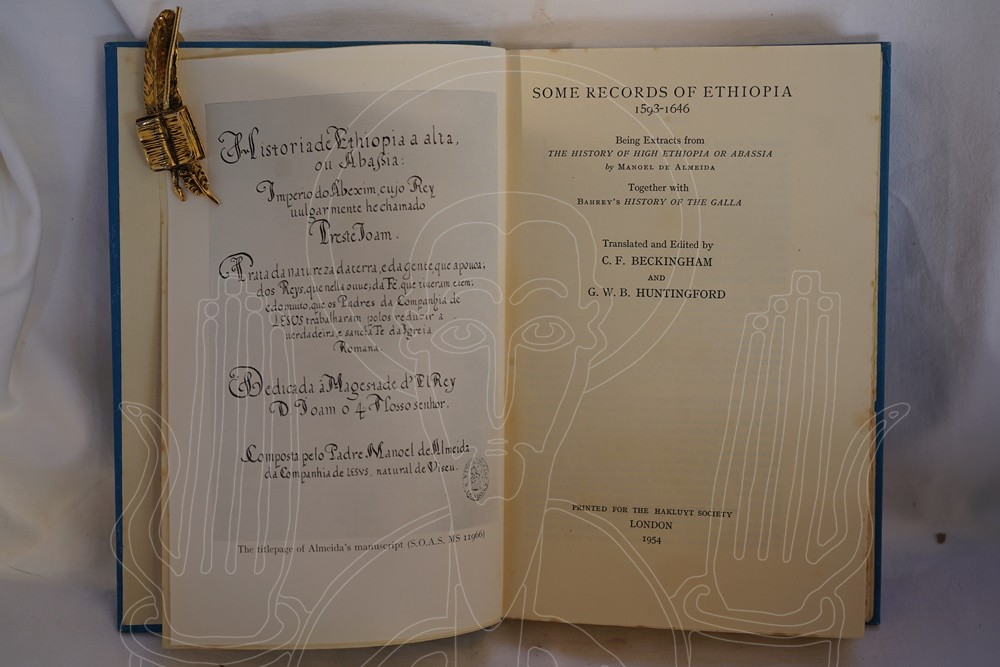 Historia de Ethiopia a alta,
ou Abassia:
Imperio do Abexim, cujo Rey
vulgarmente he chamado
Preste Joam.
Trata da natureza da terra, e da gente que a povoa;
dos Reys, que nella ouue; da Fé, que tiueram e tem;
e do muito, que os Padres da Companhia de
IESUS trabalharam polos reduzir a
uerdadeira, e sancta Fe da Igreia
Romana.
Dedicada á Magestade d'El Rey
D. Joam o 4 Nosso senhor.
Composta pelo Padre Manoel de Almeida
da Companhia de IESVS, natural de Viseu.
The titlepage of Almeida's manuscript (S.O.A.S. MS 11966)
SOME RECORDS OF ETHIOPIA
1593-1646
Being Extracts from
THE HISTORY OF HIGH ETHIOPIA OR ABASSIA
by MANOEL DE ALMEIDA
Together with
BAHREY'S HISTORY OF THE GALLA
Translated and Edited by
C. F. BECKINGHAM
AND
G. W. B. HUNTINGFORD
PRINTED FOR THE HAKLUYT SOCIETY
LONDON
1954